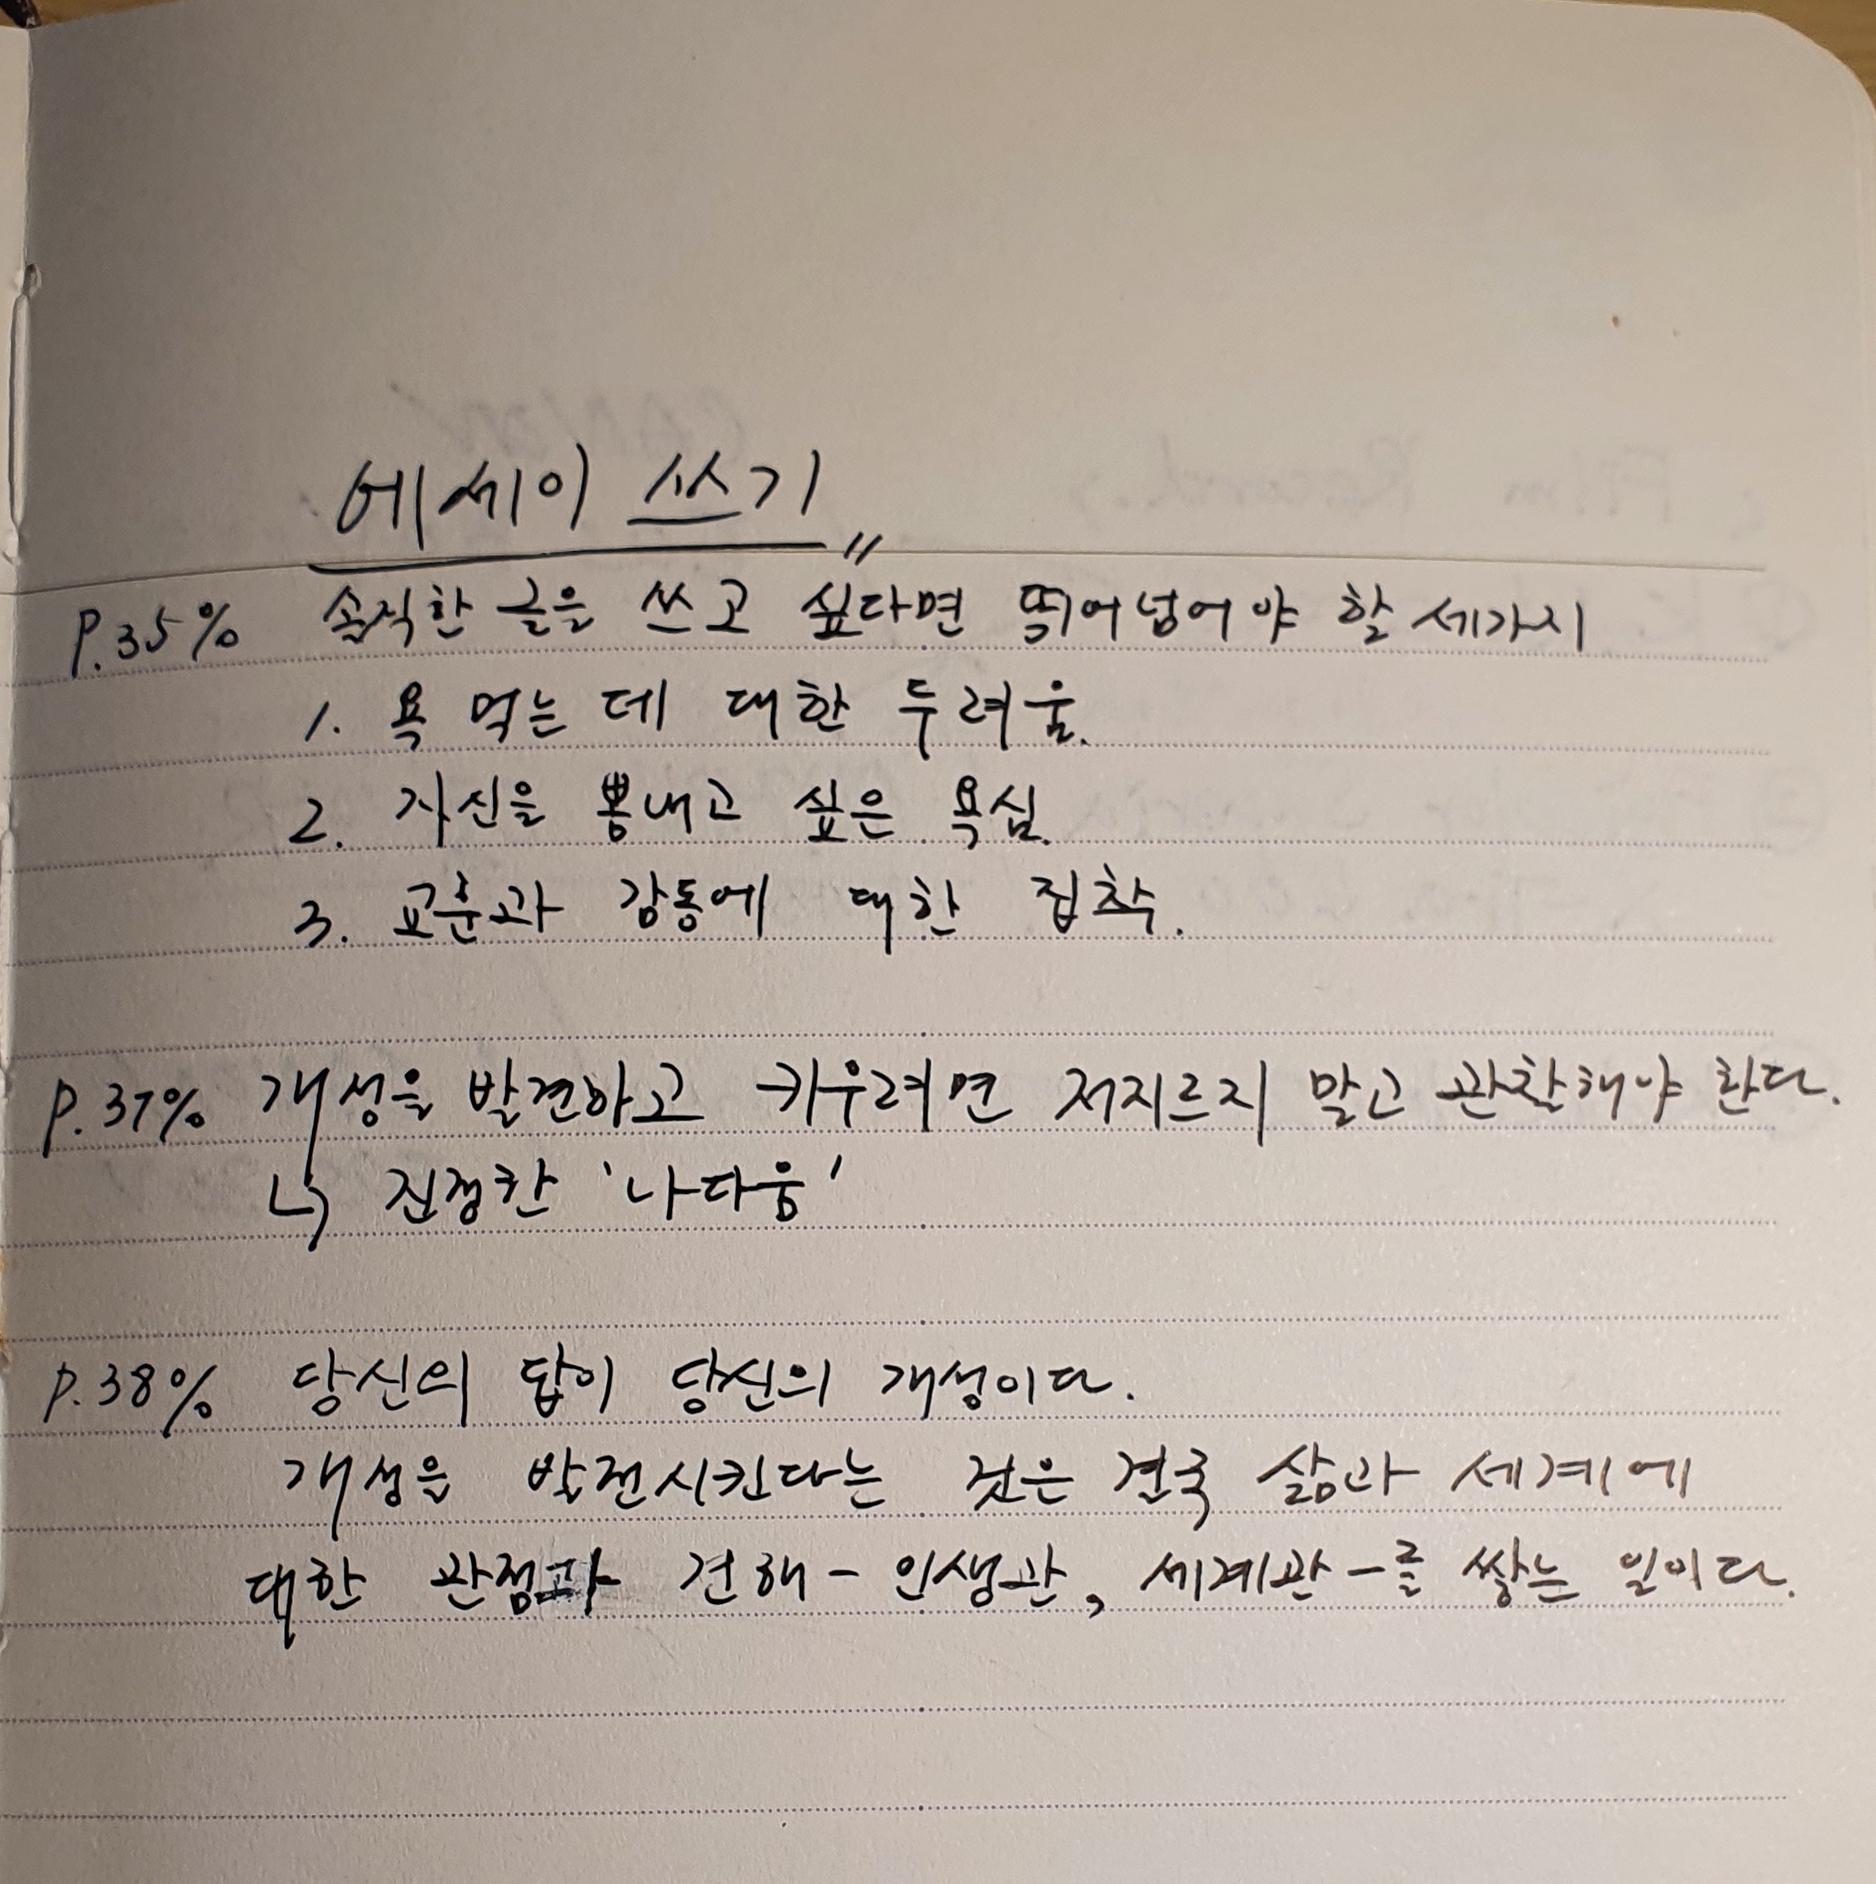 에세이 쓰기
P.35% 솔직한 글을 쓰고 싶다면 뛰어넘어야 할 세가지
1. 욕 먹는 데 대한 두려움.
2. 자신을 뽐내고 싶은 욕심.
3. 교훈과 감동에 대한 집착.
P.37% 개성을 발견하고 키우려면 저지르지 말고 관찰해야 한다.
↳ 진정한 '나다움'
P.38% 당신의 답이 당신의 개성이다.
개성을 발전시킨다는 것은 결국 삶과 세계에
대한 관점과 견해 - 인생관, 세계관 - 를 쌓는 일이다.